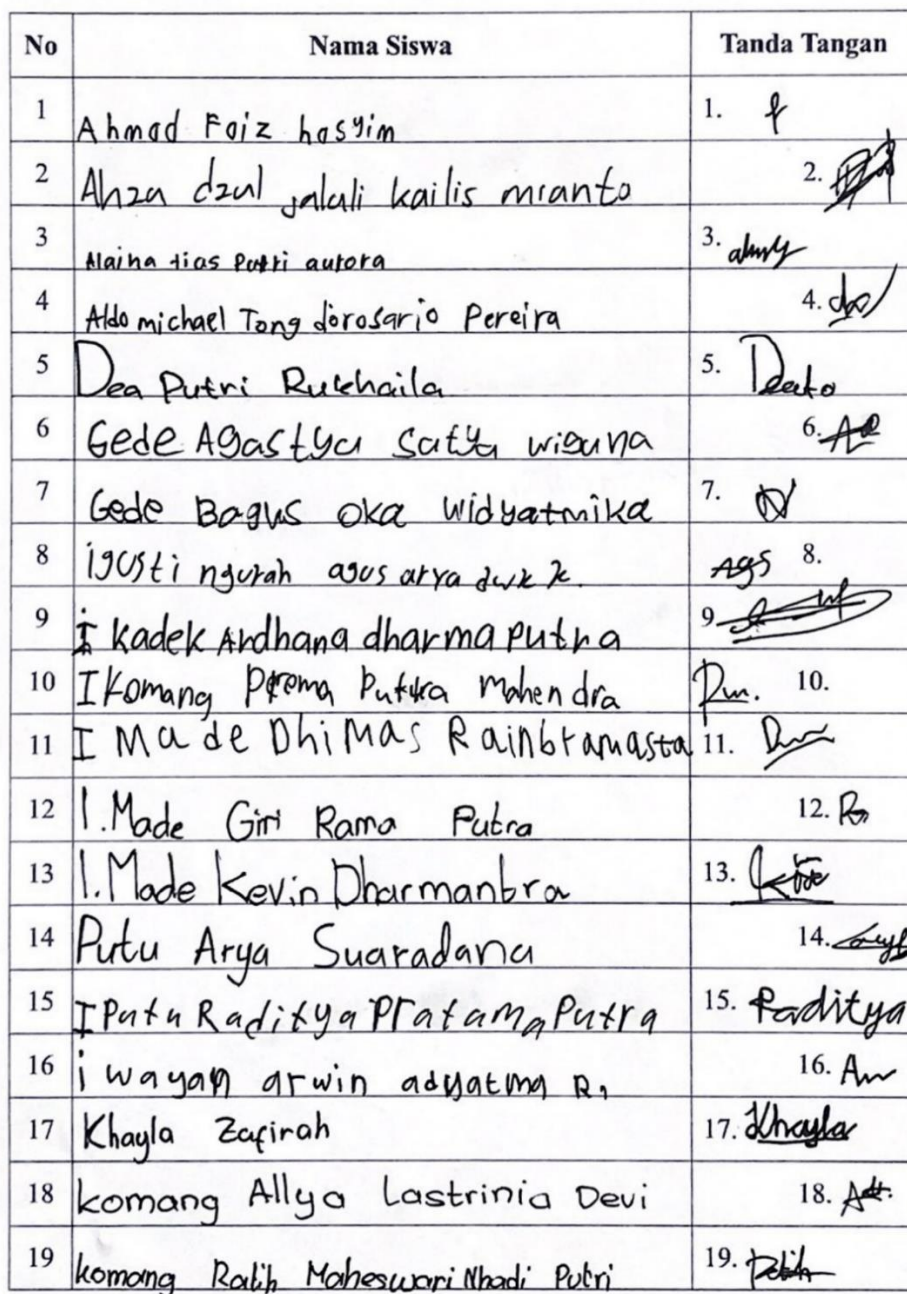 No Nama Siswa Tanda Tangan
1 Ahmad Faiz hasyim 1.
2 Ahza dzul jalali kailis mianto 2.
3 Alaina tias Putri aurora 3.
4 Aldo michael Tong dorosario Pereira 4.
5 Dea Putri Rukhaila 5.
6 Gede Agastya satya wiguna 6.
7 Gede Bagus oka widyatmika 7.
8 igusti ngurah agus arya dwk k. Ags 8.
9 I kadek Ardhana dharma putra 9
10 I Komang Prema Putra Mahendra 10.
11 I Made Dhimas Rainbramasta 11.
12 I.Made Giri Rama Putra 12.
13 I.Made Kevin Dharmantra 13.
14 Putu Arya Suaradana 14.
15 I Putu Raditya Pratama Putra 15. Raditya
16 i wayan arwin adyatma R. 16.
17 Khayla Zafirah 17. Khayla
18 komang Allya Lastrinia Devi 18.
19 komang Ratih Maheswari Nhadi Putri 19.